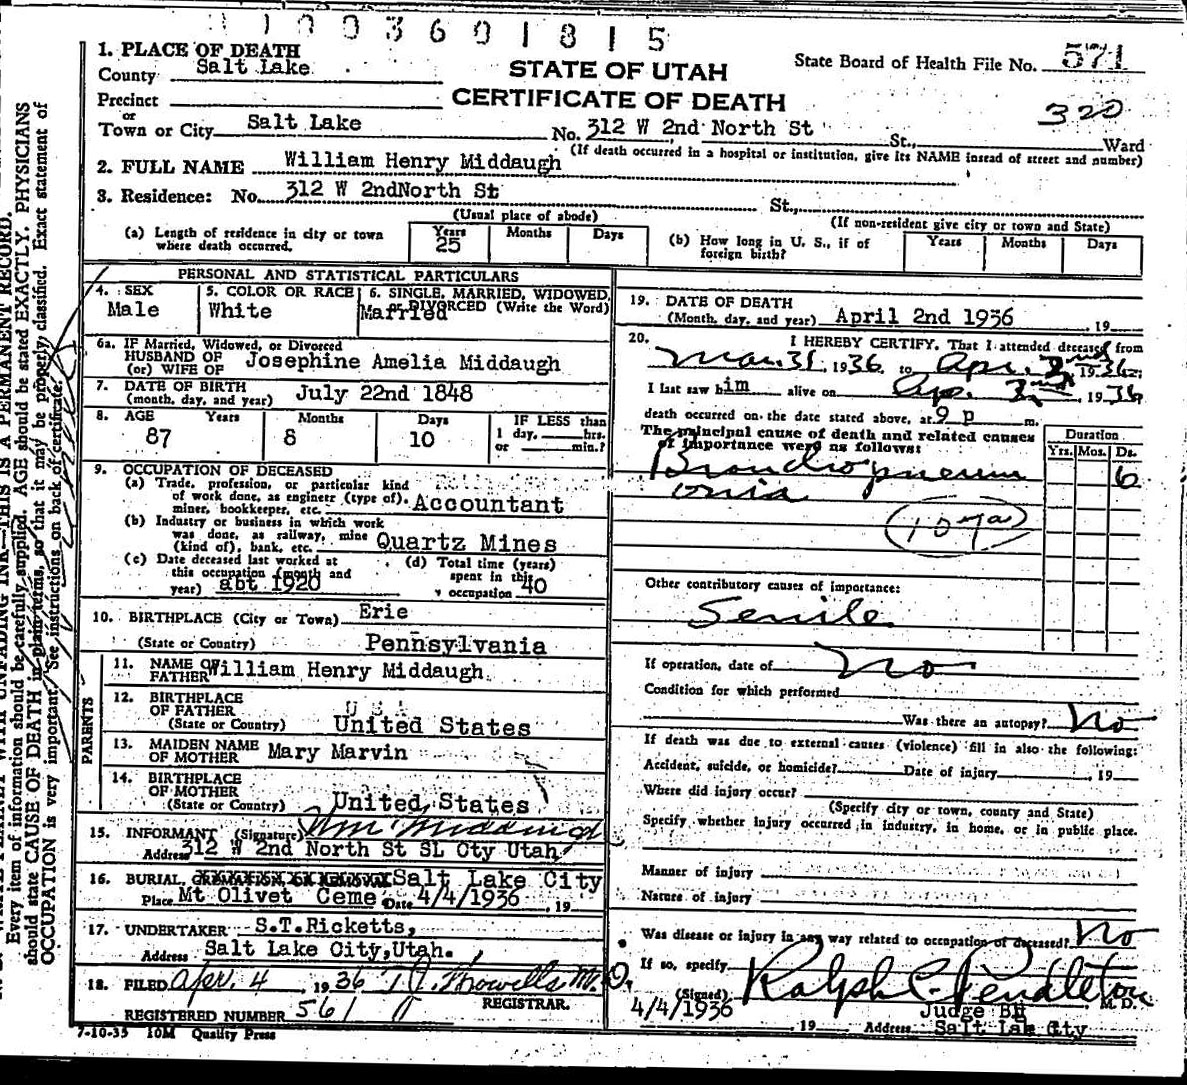 1003601815
1. PLACE OF DEATH
County Salt Lake
STATE OF UTAH
CERTIFICATE OF DEATH
State Board of Health File No. 571
Precinct
or
320
Town or City Salt Lake No. 312 W 2nd North St St., Ward
(If death occurred in a hospital or institution, give its NAME instead of street and number)
2. FULL NAME William Henry Middaugh
3. Residence: No. 312 W 2ndNorth St St.,
(Usual place of abode) (If non-resident give city or town and State)
(a) Length of residence in city or town where death occurred. Years 25 Months Days
(b) How long in U. S., if of foreign birth? Years Months Days
PERSONAL AND STATISTICAL PARTICULARS
4. SEX 5. COLOR OR RACE 6. SINGLE, MARRIED, WIDOWED,
or DIVORCED (Write the Word)
Male White Married
6a. IF Married, Widowed, or Divorced
HUSBAND OF
(or) WIFE OF Josephine Amelia Middaugh
7. DATE OF BIRTH
(month, day, and year) July 22nd 1848
8. AGE Years Months Days IF LESS than
1 day, hrs.
or min.?
87 8 10
9. OCCUPATION OF DECEASED
(a) Trade, profession, or particular kind
of work done, as engineer (type of),
miner, bookkeeper, etc. Accountant
(b) Industry or business in which work
was done, as railway, mine
(kind of), bank, etc. Quartz Mines
(c) Date deceased last worked at
this occupation (month and
year) abt 1920
(d) Total time (years)
spent in this
occupation 40
10. BIRTHPLACE (City or Town) Erie
(State or Country) Pennsylvania
PARENTS
11. NAME OF
FATHER William Henry Middaugh
12. BIRTHPLACE
OF FATHER U S A
(State or Country) United States
13. MAIDEN NAME
OF MOTHER Mary Marvin
14. BIRTHPLACE
OF MOTHER
(State or Country) United States
15. INFORMANT (Signature) Wm Middaugh
Address 312 W 2nd North St SL Cty Utah
16. BURIAL, CREMATION, OR REMOVAL Salt Lake City
Place Mt Olivet Ceme Date 4/4/1936, 19
17. UNDERTAKER S.T.Ricketts,
Address Salt Lake City,Utah.
18. FILED Apr. 4 1936 M.D.
REGISTRAR.
REGISTERED NUMBER 561
7-10-35 10M Quality Press
19. DATE OF DEATH
(Month, day, and year) April 2nd 1936, 19
20. I HEREBY CERTIFY, That I attended deceased from
Mar. 31, 1936 to Apr. 2nd 1936;
I last saw him alive on Apr. 2nd, 1936
death occurred on the date stated above, at 9 p m.
The principal cause of death and related causes
of importance were as follows:
Duration
Yrs. Mos. Ds.
Bronchopneum
onia 6
107a
Other contributory causes of importance:
Senile
If operation, date of No
Condition for which performed
Was there an autopsy? No
If death was due to external causes (violence) fill in also the following:
Accident, suicide, or homicide? Date of injury, 19
Where did injury occur?
(Specify city or town, county and State)
Specify whether injury occurred in industry, in home, or in public place.
Manner of injury
Nature of injury
Was disease or injury in any way related to occupation of deceased? No
If so, specify
(Signed) Ralph C. Pendleton M. D.
4/4/1936 Judge Bg
, 19 Address Salt Lake City
Every item of information should be carefully supplied. AGE should be stated EXACTLY. PHYSICIANS
should state CAUSE OF DEATH in plain terms, so that it may be properly classified. Exact statement of
OCCUPATION is very important. See instructions on back of certificate.